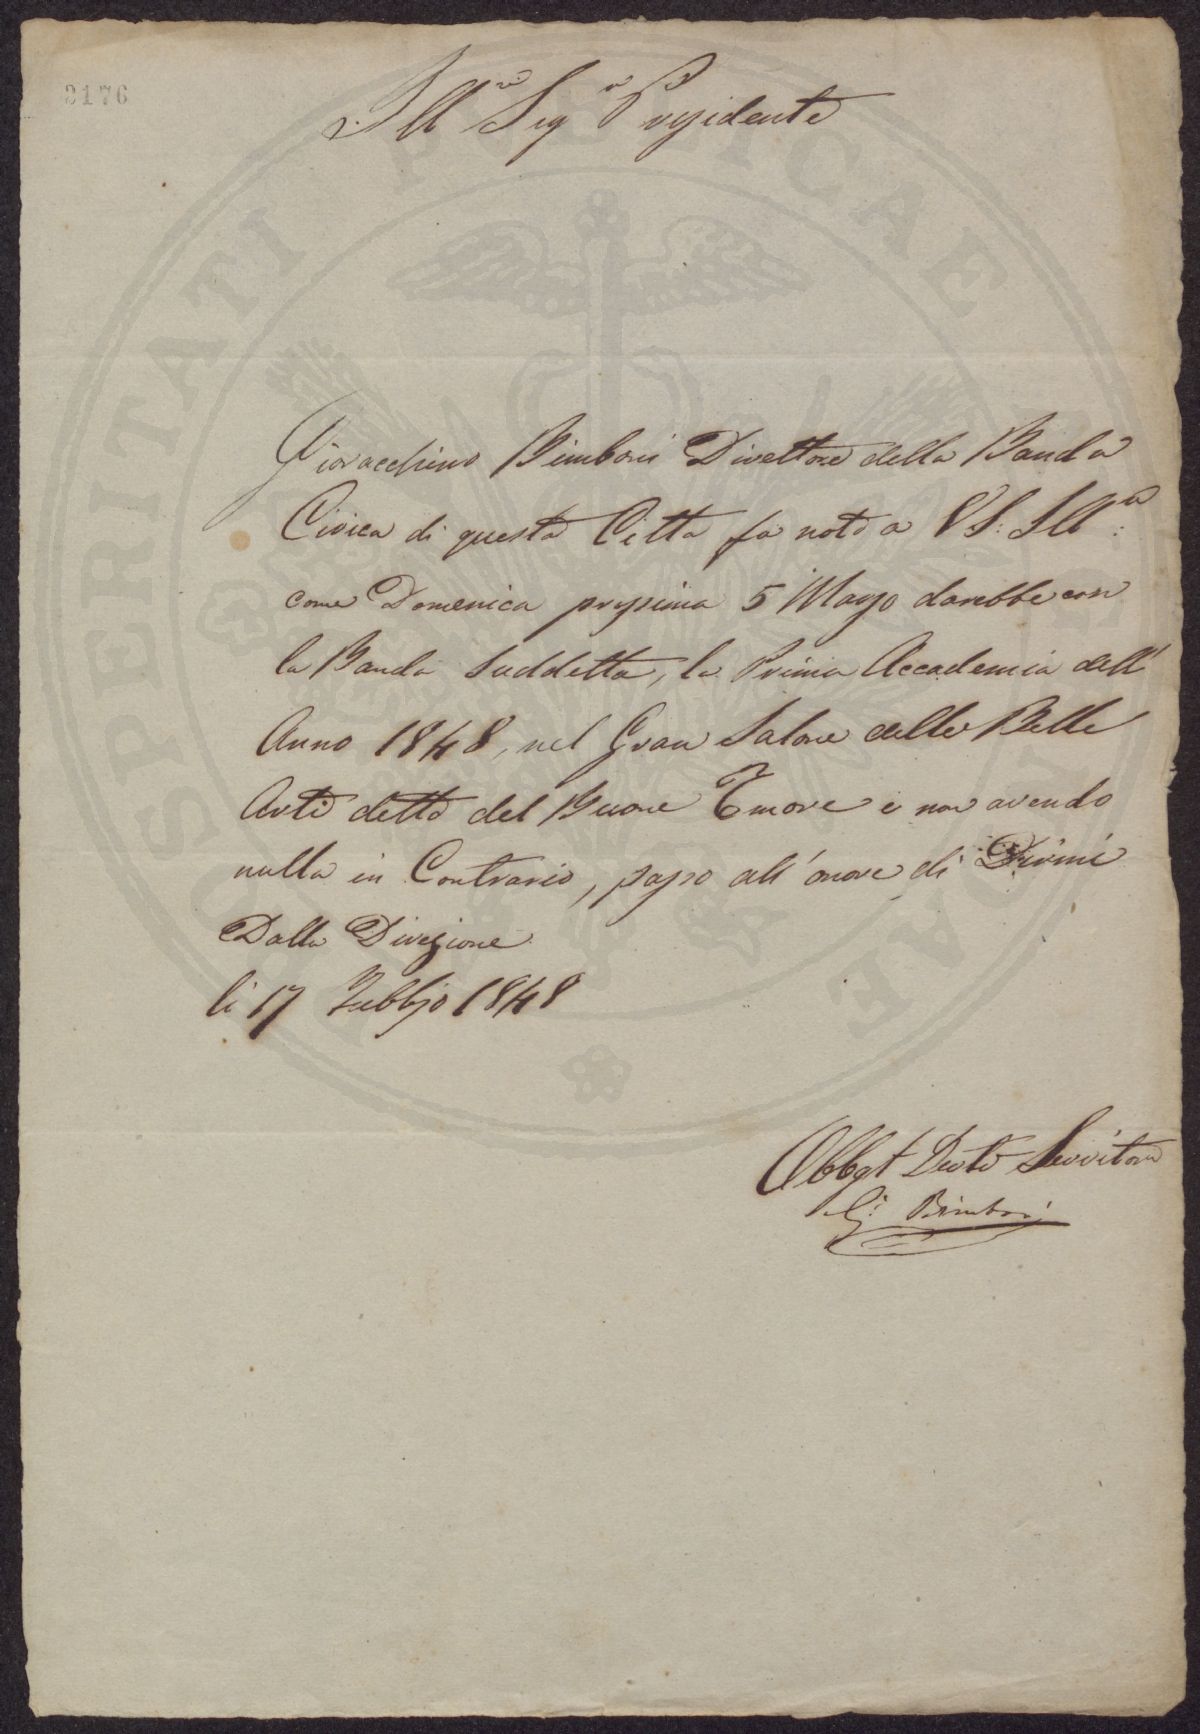 2176
Ill.mo Sig.r Presidente
Giovacchino Bimboni Direttore della Banda
Civica di questa Citta fa noto a VS: Ill.ma
come Domenica prossima 5 Marzo darebbe con
la Banda Suddetta, la Prima Accademia dell'
Anno 1848, nel Gran Salone delle Belle
Arti detto del Buone Emore e non avendo
nulla in Contrario, passo all'onore di Dirmi
Dalla Direzione
li 17 Febbjo 1848
Obbgt Devto Servitore
G: Bimboni
PROSPERITATI PUBLICAE